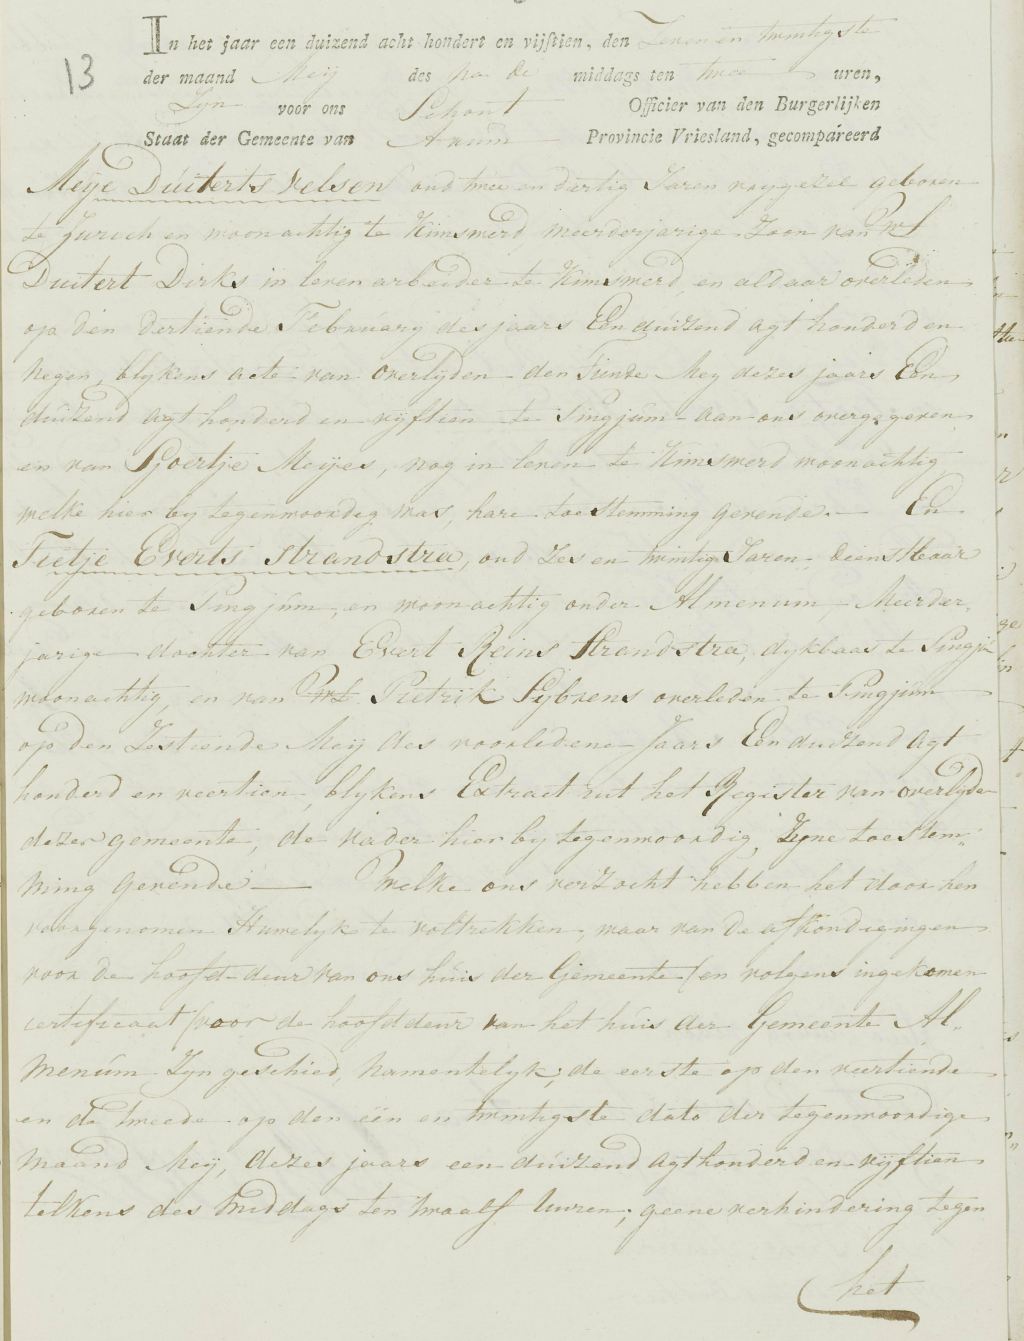 13
In het jaar een duizend acht hondert en vijftien, den Zeven en twintigste
der maand Meij des na de middags ten twee uren,
Zyn voor ons Schout Officier van den Burgerlijken
Staat der Gemeente van Arum Provincie Vriesland, gecompareerd
Meije Duiterts Velsen oud twee en dertig Jaren vrygezel geboren
te Zurich en woonachtig te Kimswerd meerderjarige Zoon van wl
Duitert Dirks in leven arbeider te Kimswerd, en aldaar overleden
op den dertiende February des jaars Een duizend agt honderd en
negen, blykens acte van overlyden den Tiende Mey dezes jaars Een
duizend agt honderd en vyftien te Pingjum aan ons overgegeven
en van Sjoertje Meijes, nog in leven te Kimswerd woonachtig
welke hier by tegenwoordig was, hare toestemming gevende. — En
Tietje Everts Strandstra, oud Zes en twintig Jaren, dienstbaar
geboren te Pingjum, en woonachtig onder Almenum, Meerder,
jarige dochter van Evert Reins Strandstra, dykbaas te Pingju
woonachtig, en van wl Pietrik Sybrens overleden te Pingjum
op den Zestiende Meij des voorledene Jaars Een duizend agt
honderd en veertien, blykens Extract uit het Register van overlyde
dezer gemeente, de vader hier by tegenwoordig, Zyne toestem„
ming gevende — Welke ons verzocht hebben het door hen
voorgenomen Huwelyk te voltrekken, waar van de afkondigingen
voor de hoofd-deur van ons huis der Gemeente (en volgens ingekomen
certificaat) voor de hoofddeur van het huis der Gemeente Al„
menum Zyn geschied, namentelyk; de eerste op den veertiende
en de tweede op den één en twintigste dato der tegenwoordige
maand Meij, dezes jaars een duizend agthonderd en vyftien
telkens des middags ten twaalf Uuren; geene verhindering tegen
het